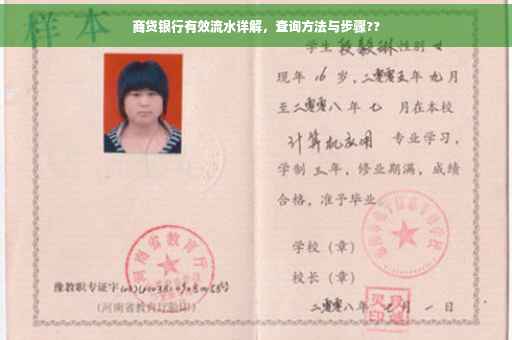 商贷银行有效流水详解，查询方法与步骤??
样本
学生段毅琳性别女
现年16岁，二零零五年九月
至二零零八年七月在本校
计算机应用 专业学习，
学制三年，修业期满，成绩
合格，准予毕业。
学校（章）
校长（章）
二零零八年 月一日
河南省教育厅
豫教职专证字
(河南省教育厅验印)